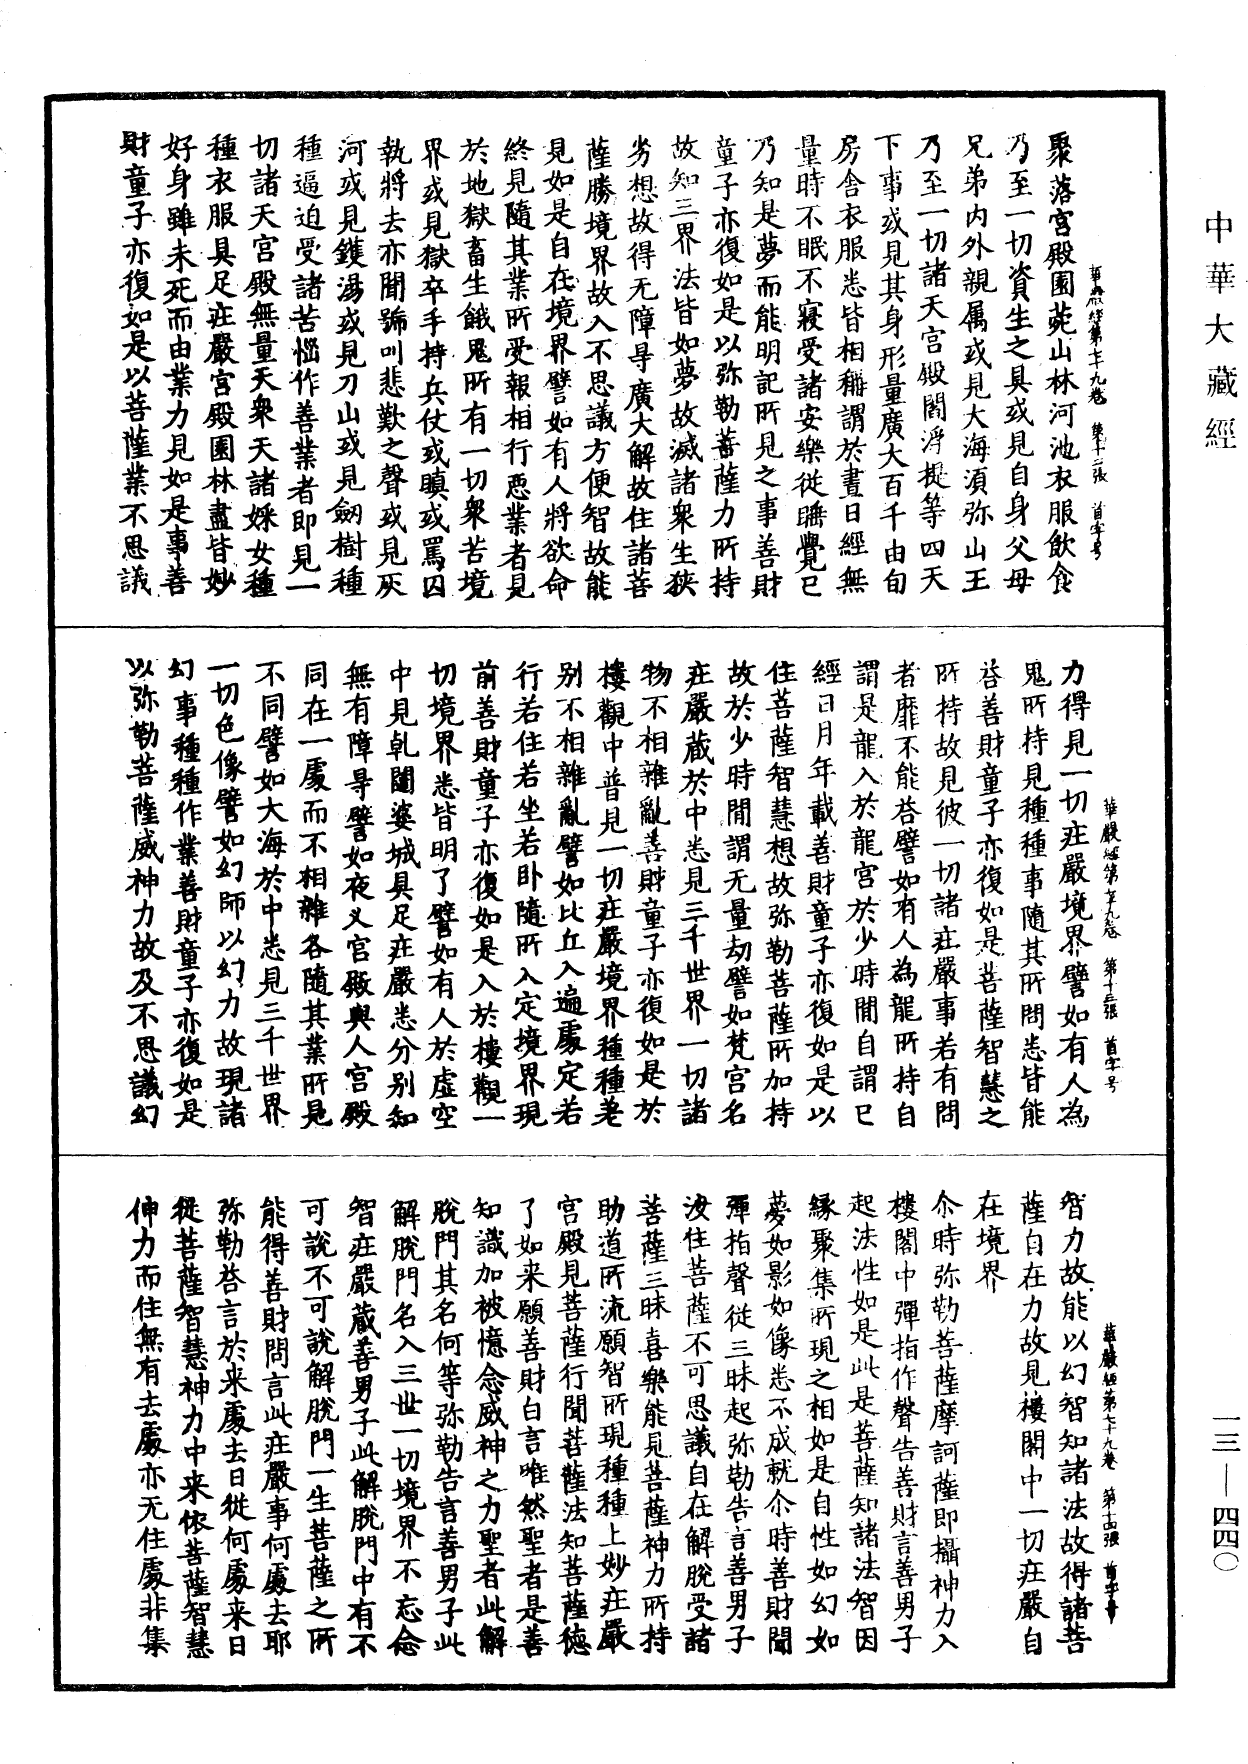 中華大藏經
聚落宮殿園苑山林河池衣服飲食
乃至一切資生之具或見自身父母
兄弟內外親属或見大海須弥山王
乃至一切諸天宮殿閻浮提等四天
下事或見其身形量廣大百千由旬
房舍衣服悉皆相稱謂於晝日經無
量時不眠不寢受諸安樂從睡覺已
乃知是夢而能明記所見之事善財
童子亦復如是以弥勒菩薩力所持
故知三界法皆如夢故滅諸衆生狹
劣想故得无障㝵廣大解故住諸菩
薩勝境界故入不思議方便智故能
見如是自在境界譬如有人將欲命
終見隨其業所受報相行惡業者見
於地獄畜生餓鬼所有一切衆苦境
界或見獄卒手持兵仗或瞋或罵囚
執將去亦聞號叫悲歎之聲或見灰
河或見鑊湯或見刀山或見劒樹種
種逼迫受諸苦惱作善業者即見一
切諸天宮殿無量天衆天諸婇女種
種衣服具足莊嚴宮殿園林盡皆妙
好身雖未死而由業力見如是事善
財童子亦復如是以菩薩業不思議
華嚴經第七十九卷　第十二張　首字号
力得見一切莊嚴境界譬如有人為
鬼所持見種種事隨其所問悉皆能
荅善財童子亦復如是菩薩智慧之
所持故見彼一切諸莊嚴事若有問
者靡不能荅譬如有人為龍所持自
謂是龍入於龍宮於少時間自謂已
經日月年載善財童子亦復如是以
住菩薩智慧想故弥勒菩薩所加持
故於少時間謂无量劫譬如梵宮名
莊嚴蔵於中悉見三千世界一切諸
物不相雜亂善財童子亦復如是於
樓觀中普見一切莊嚴境界種種差
別不相雜亂譬如比丘入遍處定若
行若住若坐若卧隨所入定境界現
前善財童子亦復如是入於樓觀一
切境界悉皆明了譬如有人於虛空
中見乹闥婆城具足莊嚴悉分別知
無有障㝵譬如夜叉宮殿與人宮殿
同在一處而不相雜各隨其業所見
不同譬如大海於中悉見三千世界
一切色像譬如幻師以幻力故現諸
幻事種種作業善財童子亦復如是
以弥勒菩薩威神力故及不思議幻
華嚴經第七十九卷　第十三張　首字号
智力故能以幻智知諸法故得諸菩
薩自在力故見樓閣中一切莊嚴自
在境界
尒時弥勒菩薩摩訶薩即攝神力入
樓閣中彈指作聲告善財言善男子
起法性如是此是菩薩知諸法智因
緣聚集所現之相如是自性如幻如
夢如影如像悉不成就尒時善財聞
彈指聲從三昧起弥勒告言善男子
汝住菩薩不可思議自在解脫受諸
菩薩三昧喜樂能見菩薩神力所持
助道所流願智所現種種上妙莊嚴
宮殿見菩薩行聞菩薩法知菩薩德
了如来願善財白言唯然聖者是善
知識加被憶念威神之力聖者此解
脫門其名何等弥勒告言善男子此
解脫門名入三世一切境界不忘念
智莊嚴蔵善男子此解脫門中有不
可說不可說解脫門一生菩薩之所
能得善財問言此莊嚴事何處去耶
弥勒荅言於来處去曰從何處来曰
從菩薩智慧神力中来依菩薩智慧
神力而住無有去處亦无住處非集
華嚴經第七十九卷　第十四張　首字号
一三—四四〇